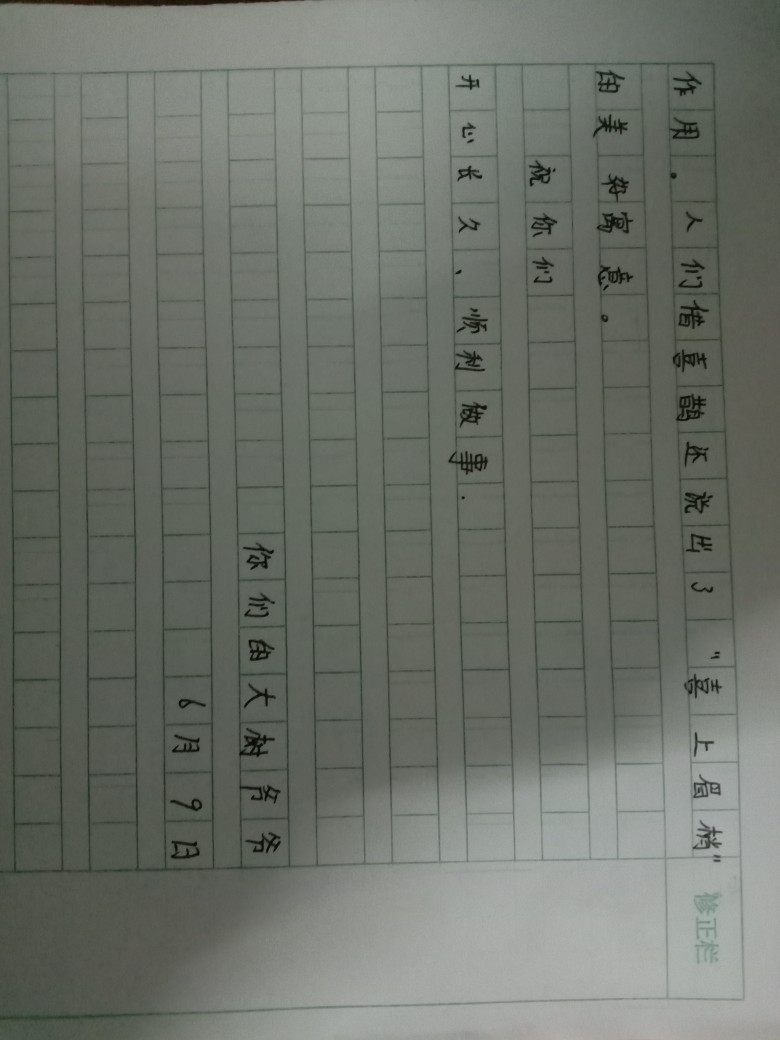 作用。人们借喜鹊还说出了“喜上眉梢”
的美好寓意。
祝你们
开心长久、顺利做事.
你们的大树爷爷
6月9日
修正栏